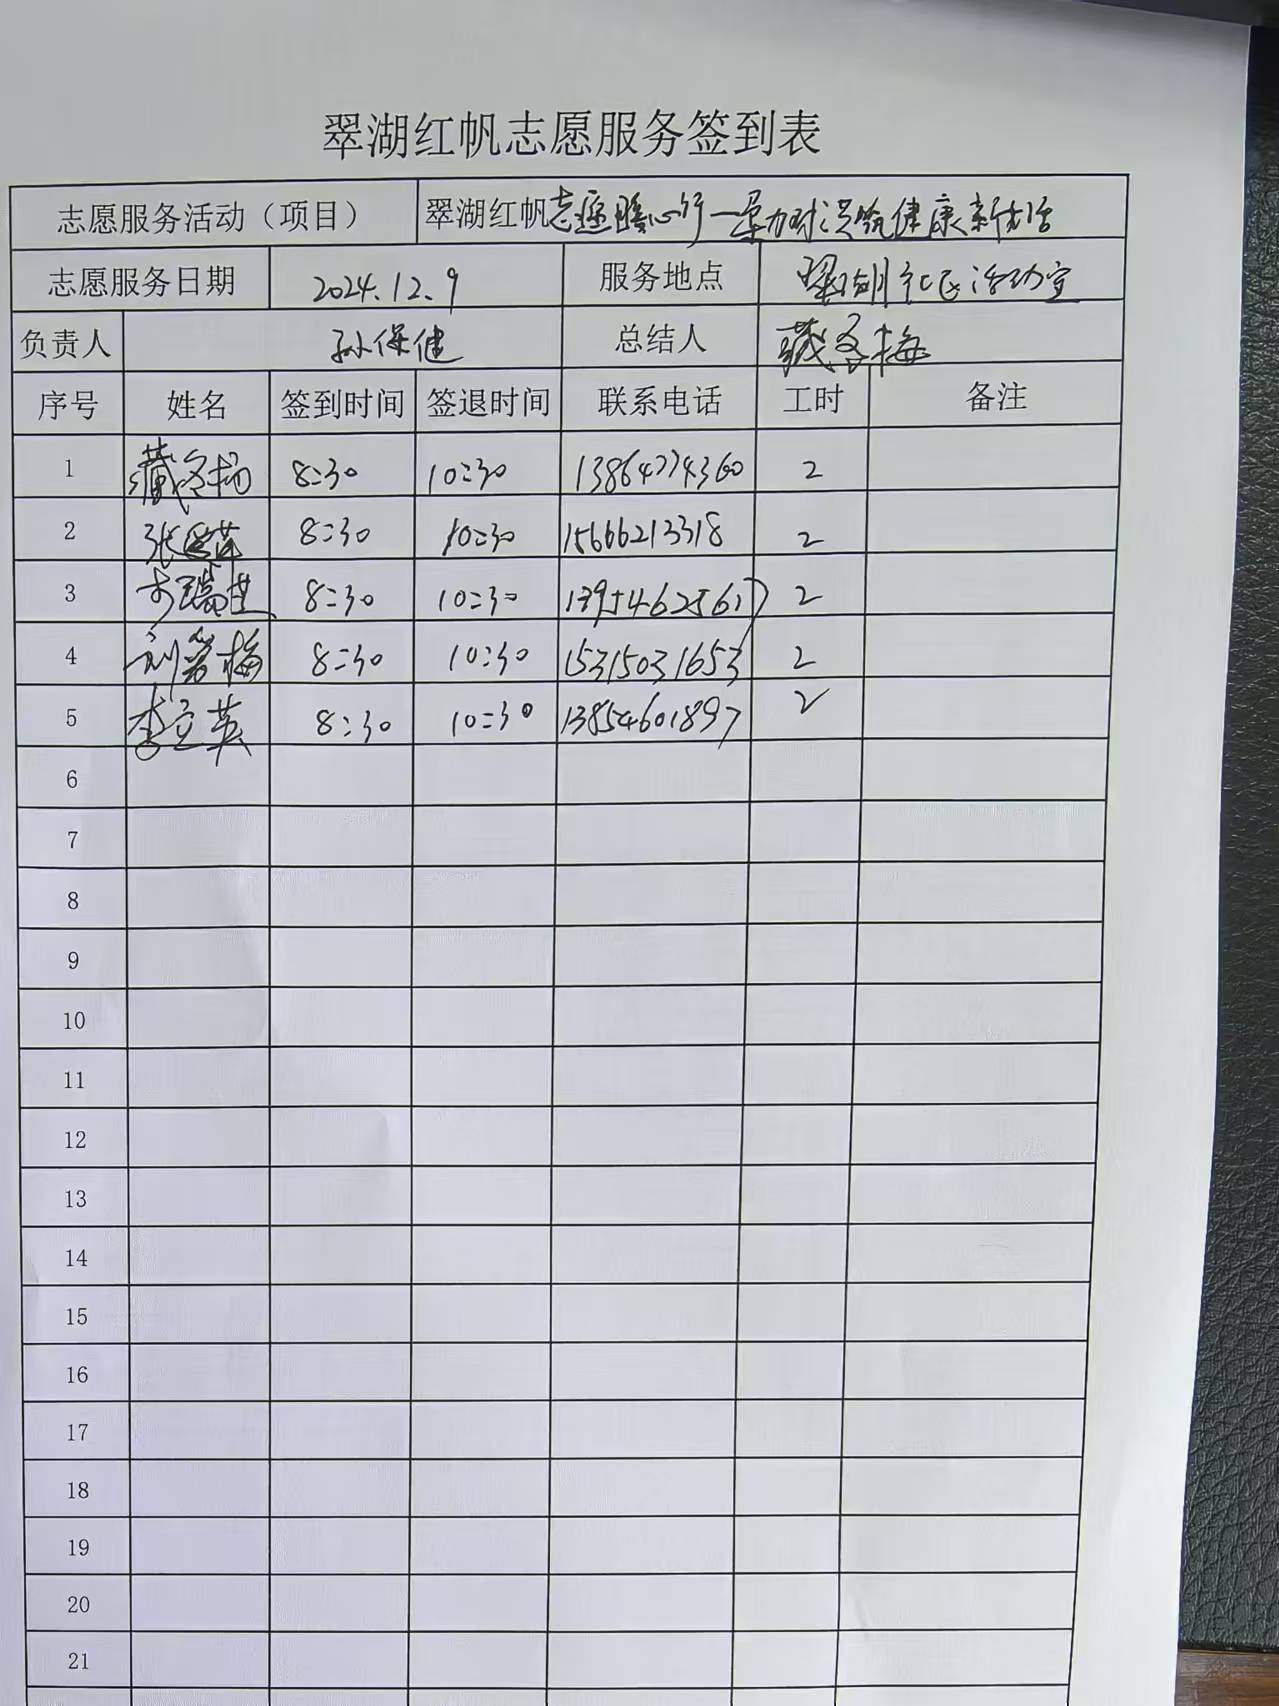 翠湖红帆志愿服务签到表
志愿服务活动（项目） 翠湖红帆志愿暖心行一 健康新生活
志愿服务日期 2024.12.9 服务地点 翠湖社区活动室
负责人 孙保健 总结人 藏冬梅
序号 姓名 签到时间 签退时间 联系电话 工时 备注
1 藏冬梅 8:30 10:30 13864774360 2
2 张 8:30 10:30 15666213318 2
3 瑞 8:30 10:30 2
4 刘 梅 8:30 10:30 15315031653 2
5 李立英 8:30 10:30 13854601897 2
6
7
8
9
10
11
12
13
14
15
16
17
18
19
20
21